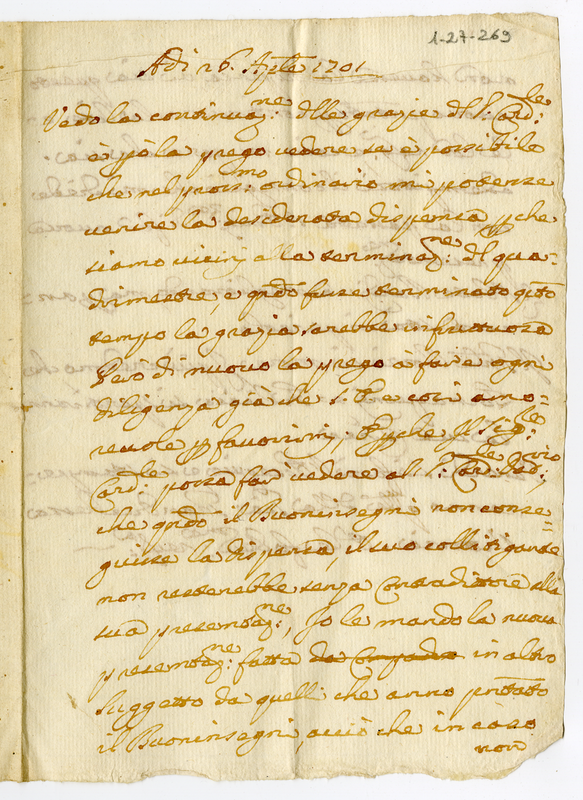 1-27-269
Adi 26. Aprle 1701
Vedo la continuazne: dlle grazie dl S: Cardle:
è pò la prego vedere se è possibile
che nel prossmo: ordinario mi potesse
venire la desiderata dispensa pche
siamo vicinj alla terminazne: dl qua-
drimestre, e qndo fusse terminato qsto
tempo la grazia sarebbe infrutuosa
Però di nuovo la prego à fare ogni
diligenza già che S. P. e così amo=
revole p favorirmj; Pche il Sigre:
Cardle possa far vedere al S: Cardle:
che qndo il Buoninsegni non conse=
guisse la dispensa, il suo collitigante
non resterebbe senza Contradittore alla
sua presentazne:, Io le mando la nuova
presentazne: fatta da Compadre in altro
suggetto da quelli che anno pntato
il Buoninsegni, acciò che in caso
non